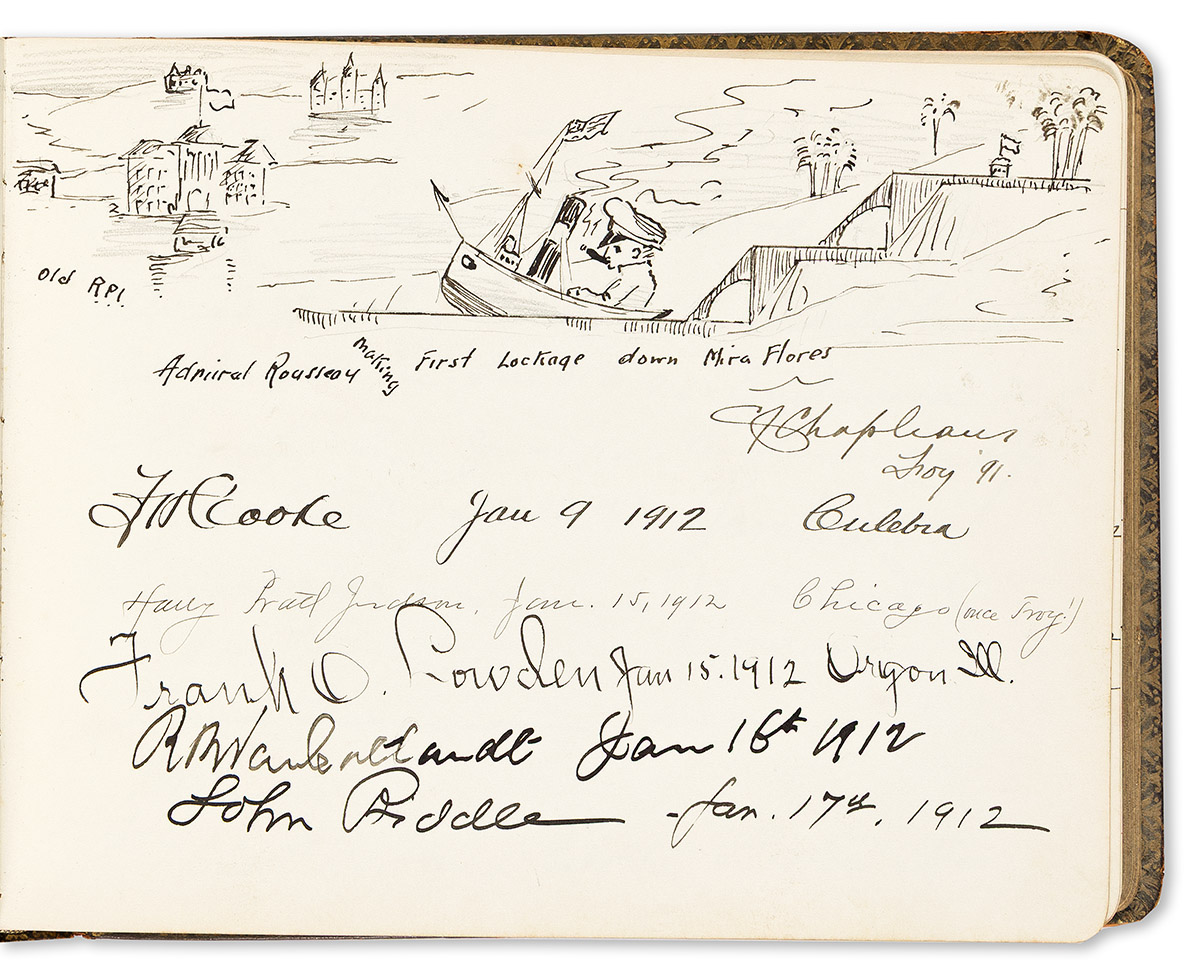 Old R.P.I.
Admiral Rousseau making First Lockage down Mira Flores
Troy '91.
Cooke Jan 9 1912 Culebra
Harry Pratt Judson. Jan. 15, 1912 Chicago (once Troy!)
Frank O. Lowden Jan 15. 1912 Oregon Ill.
Jan 16th 1912
John Riddle - Jan. 17th, 1912